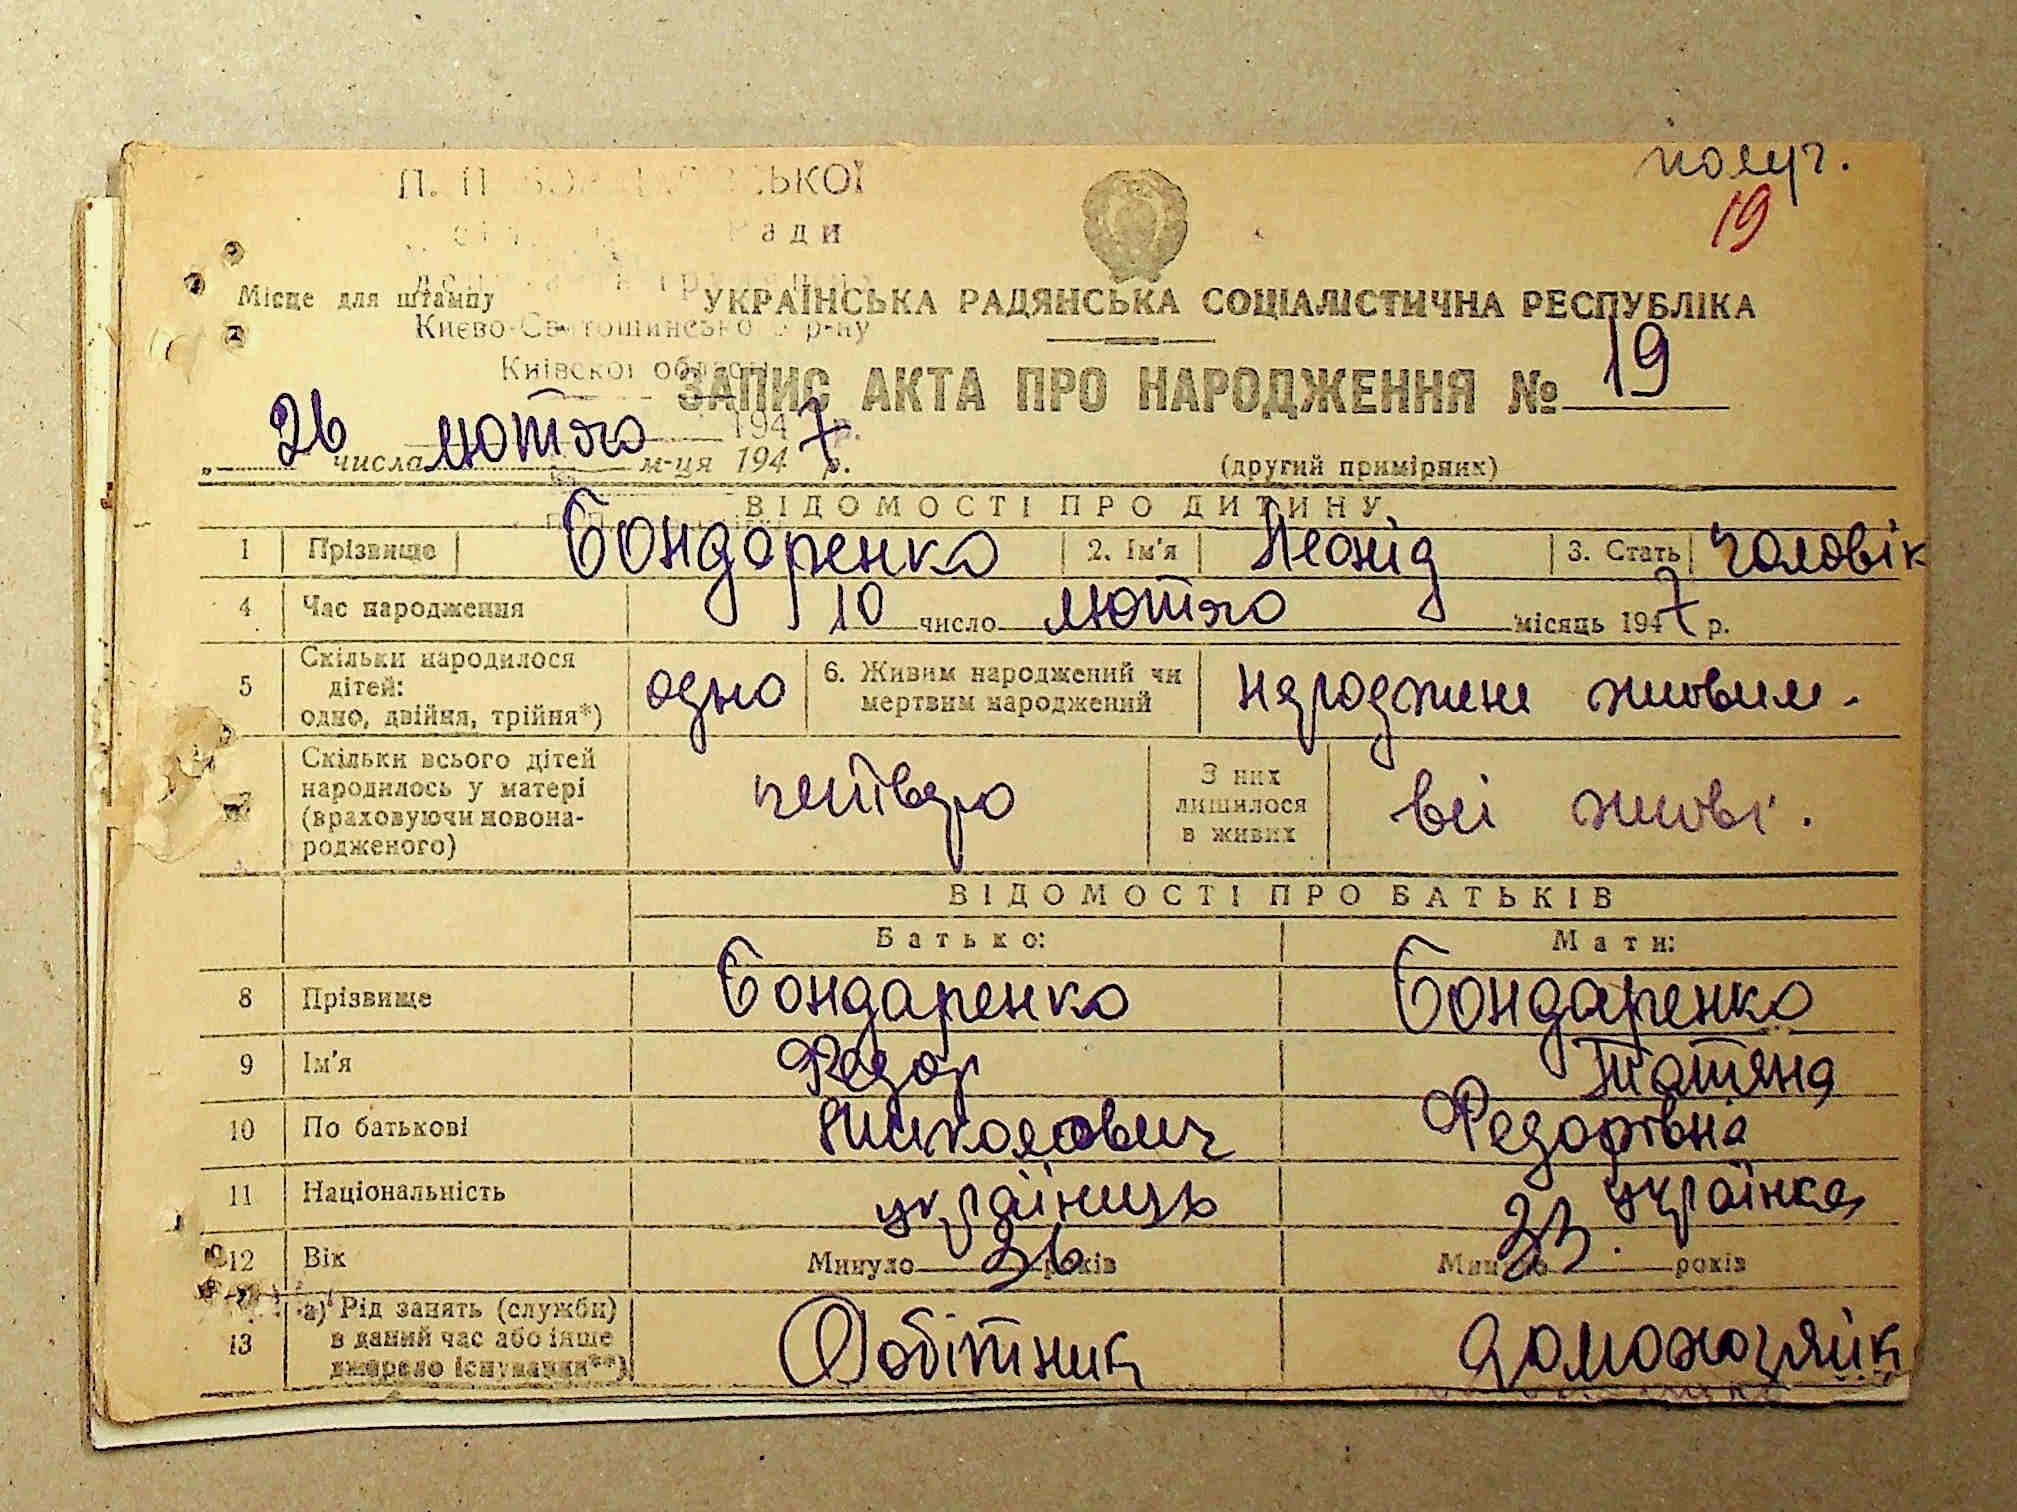 получ.
19
ЬКОЇ
Ради
Місце для штампу
УКРАЇНСЬКА РАДЯНСЬКА СОЦІАЛІСТИЧНА РЕСПУБЛІКА
Києво-Святошинського р-ну
Київської області
ЗАПИС АКТА ПРО НАРОДЖЕННЯ № 19
194 р.
„ 26 числа лютого м-ця 1947 р.
(другий примірник)
ВІДОМОСТІ ПРО ДИТИНУ
1 Прізвище Бондаренко 2. Ім'я Леонід 3. Стать чоловік
4 Час народження 10 число лютого місяць 1947 р.
5 Скільки народилося дітей: одно, двійня, трійня*) одно 6. Живим народжений чи мертвим народжений народжене живим.
Скільки всього дітей народилось у матері (враховуючи новонародженого) четверо З них лишилося в живих всі живі.
ВІДОМОСТІ ПРО БАТЬКІВ
Батько: Мати:
8 Прізвище Бондаренко Бондаренко
9 Ім'я Федор Татяна
10 По батькові Николович Федорівна
11 Національність українець українка
12 Вік Минуло 36 років Минуло 33 років
13 а) Рід занять (служби) в даний час або інше джерело існування**) Робітник домохозяйк